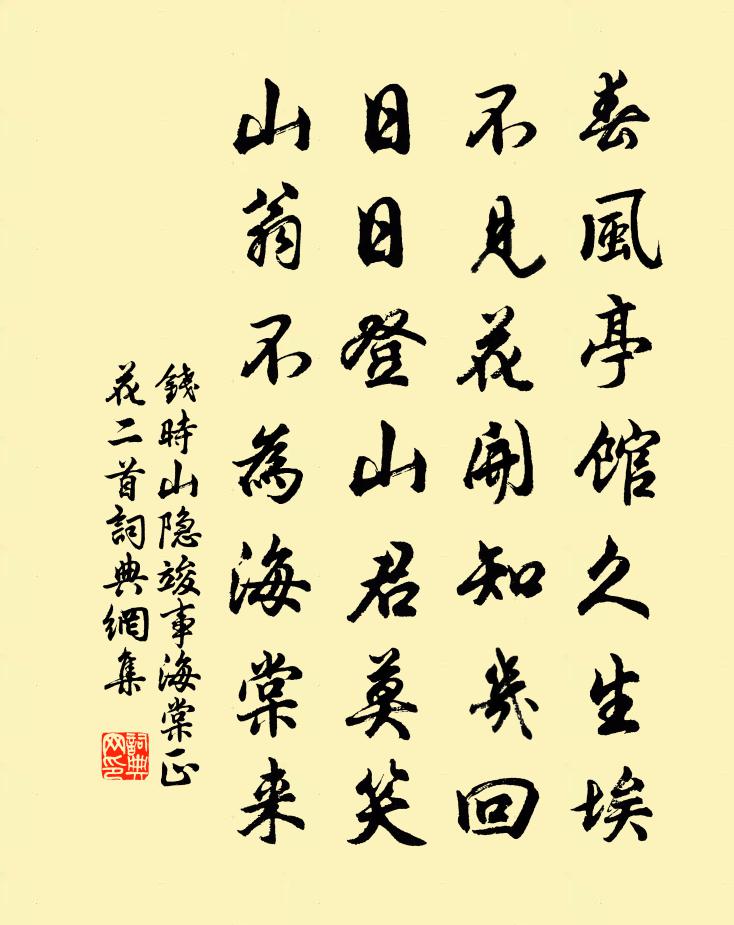 春風亭館久生埃
不見花開知幾回
日日登山君莫笑
山翁不為海棠来
錢時山隐竣事海棠正
花二首詞典網集
詞典網印